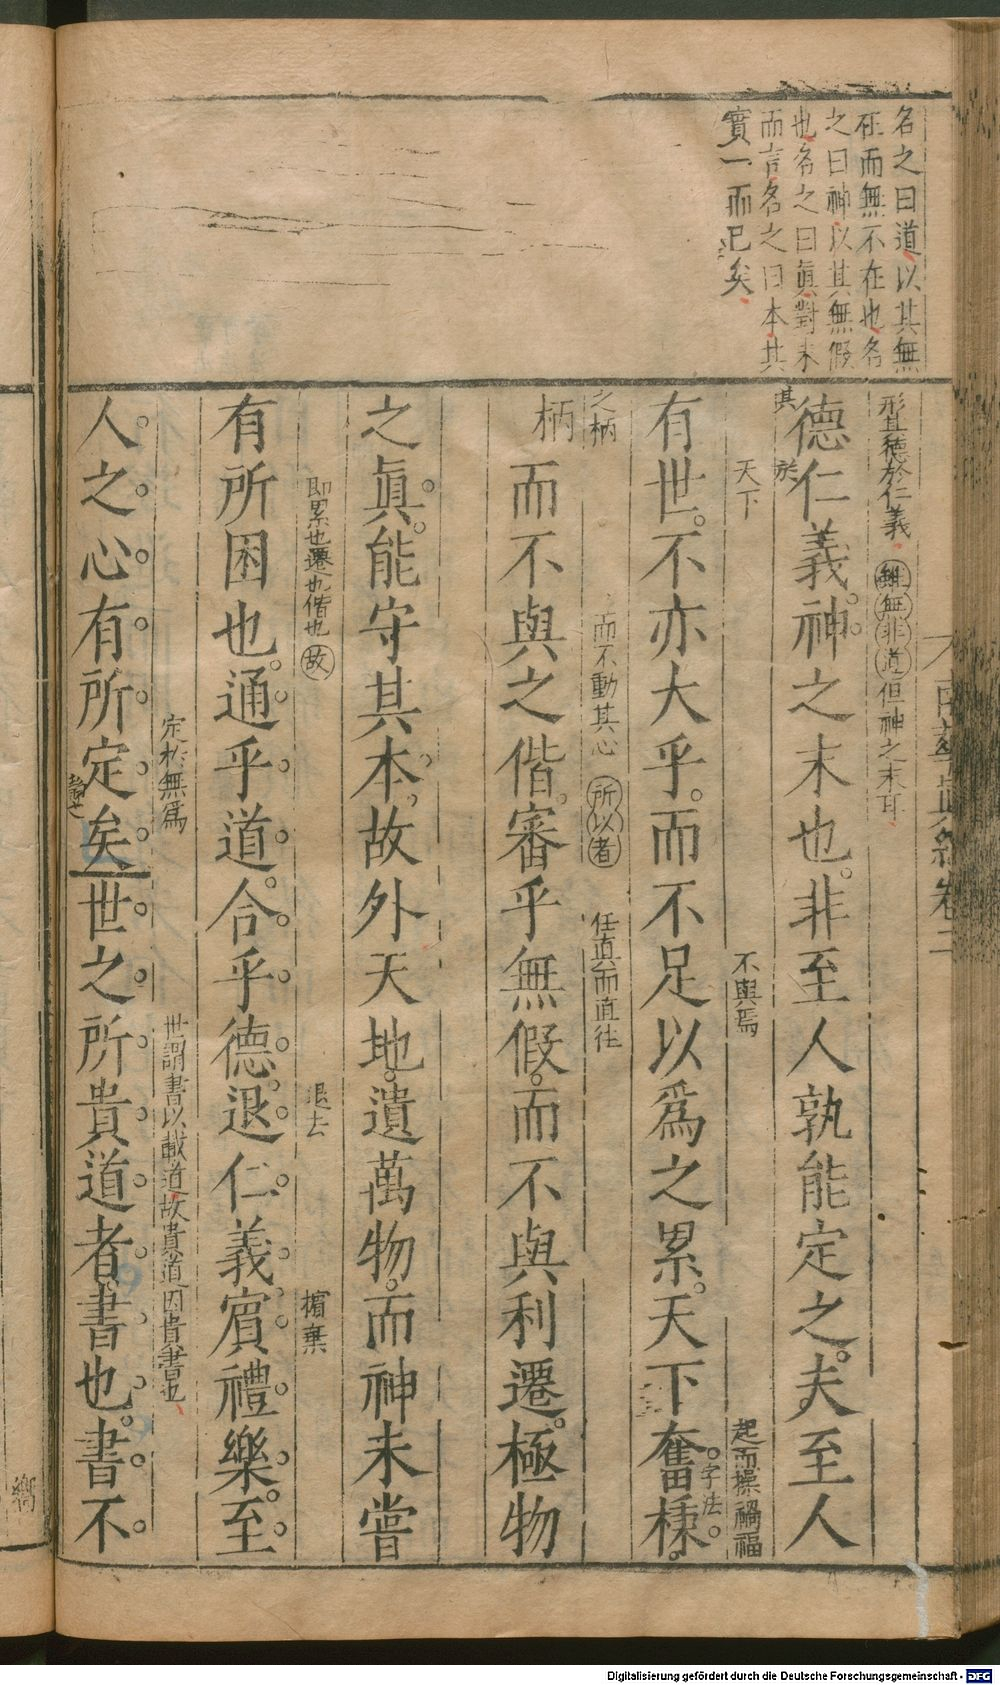 名之曰道以其無
在而無不在也名
之曰神以其無假
也名之曰眞對末
而言名之曰本其
實一而已矣
南華眞經卷二
形且德於仁義 雖無非道但神之末耳
德仁義神之末也非至人孰能定之夫至人
其於
天下 不與焉 起而操禍福
有世不亦大乎而不足以爲之累天下奮棅
字法
之柄 而不動其心 所以者 任真而直往
柄而不與之偕審乎無假而不與利遷極物
之眞能守其本故外天地遺萬物而神未嘗
即累也遷也偕也故 退去 擯棄
有所困也通乎道合乎德退仁義賓禮樂至
定於無爲 世謂書以載道故貴道因貴書也
人之心有所定矣世之所貴道者書也書不
Digitalisierung gefördert durch die Deutsche Forschungsgemeinschaft - DFG